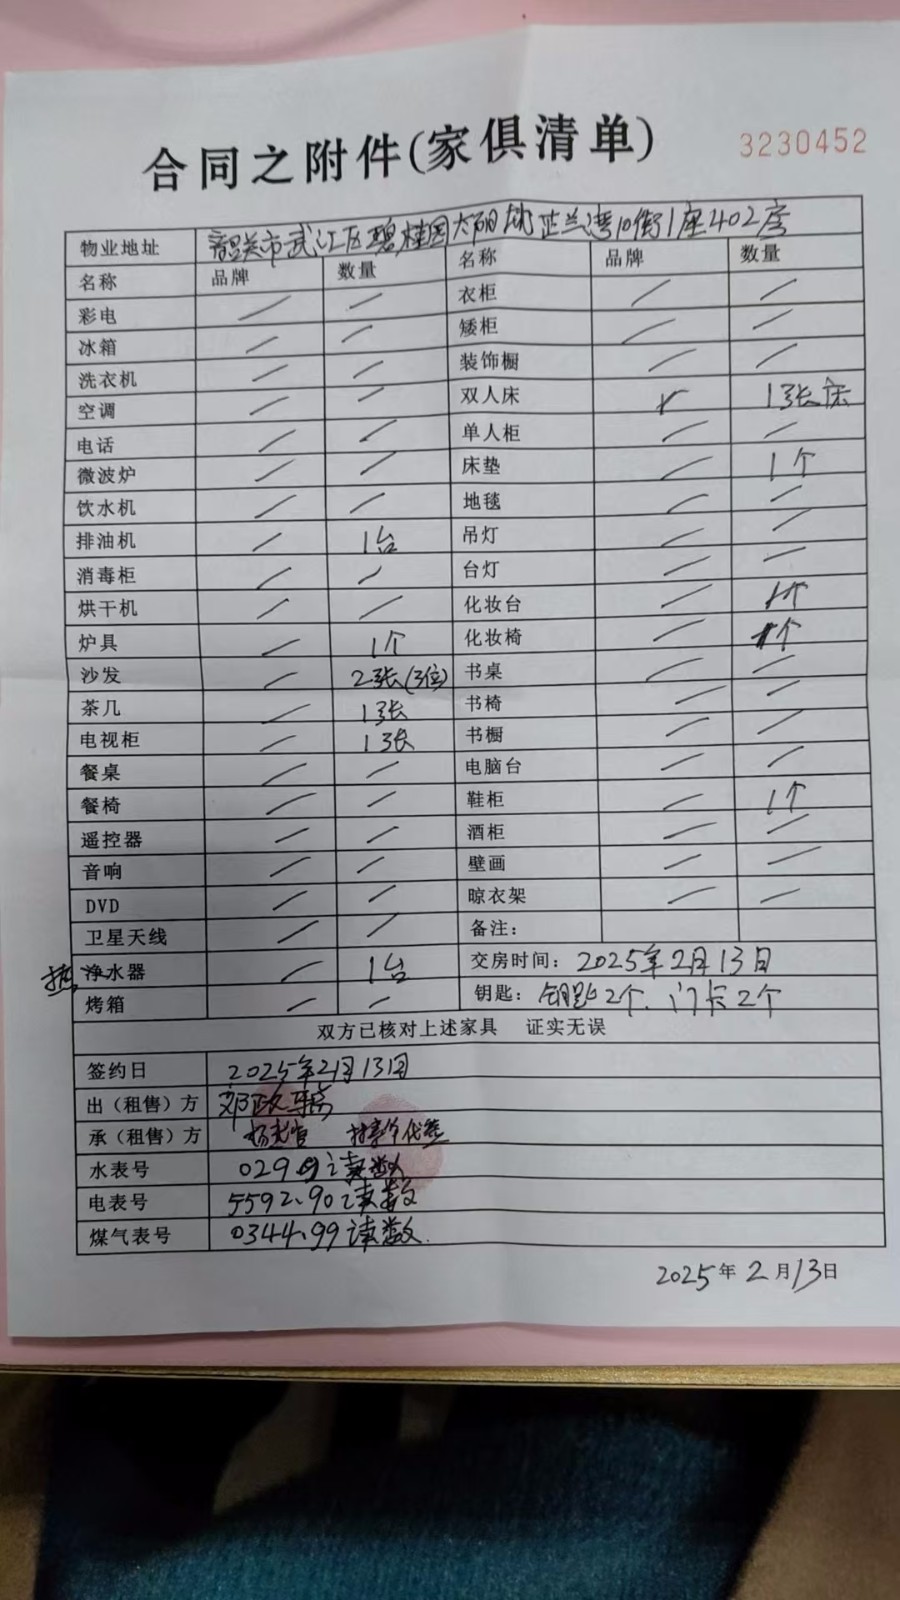 合同之附件(家俱清单)
3230452
物业地址 韶关市武江区碧桂园太阳城芷兰湾10街1座402房
名称 品牌 数量 名称 品牌 数量
彩电 / / 衣柜 / /
冰箱 / / 矮柜 / /
洗衣机 / / 装饰橱 / /
空调 / / 双人床 1张床
电话 / / 单人柜 / /
微波炉 / / 床垫 / 1个
饮水机 / / 地毯 / /
排油机 / 1台 吊灯 / /
消毒柜 / / 台灯 / /
烘干机 / / 化妆台 / 1个
炉具 / 1个 化妆椅 / 1个
沙发 / 2张(3位) 书桌 / /
茶几 / 1张 书椅 / /
电视柜 / 1张 书橱 / /
餐桌 / / 电脑台 / /
餐椅 / / 鞋柜 / 1个
遥控器 / / 酒柜 / /
音响 / / 壁画 / /
DVD / / 晾衣架 / /
卫星天线 / / 备注:
热 净水器 / 1台 交房时间: 2025年2月13日
烤箱 / / 钥匙: 钥匙2个、门卡2个
双方已核对上述家具 证实无误
签约日 2025年2月13日
出（租售）方 邓政
承（租售）方 代签
水表号 029 读数
电表号 5592.90读数
煤气表号 0344.99读数.
2025年2月13日